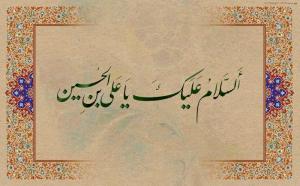 اَلسَّلامُ عَلَیکَ یا عَلیَ بنِ الحُسین